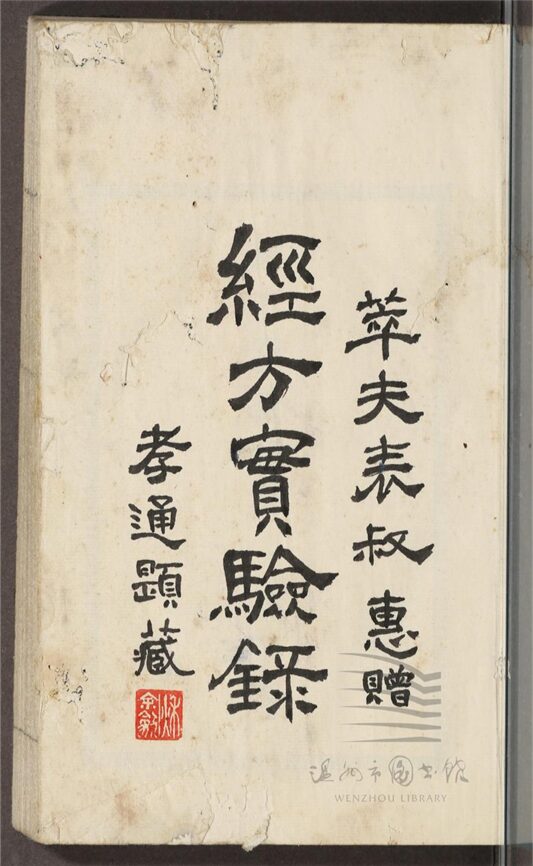 萃夫表叔惠贈
經方實驗錄
孝通題藏
溫州市圖書館
WENZHOU LIBRARY